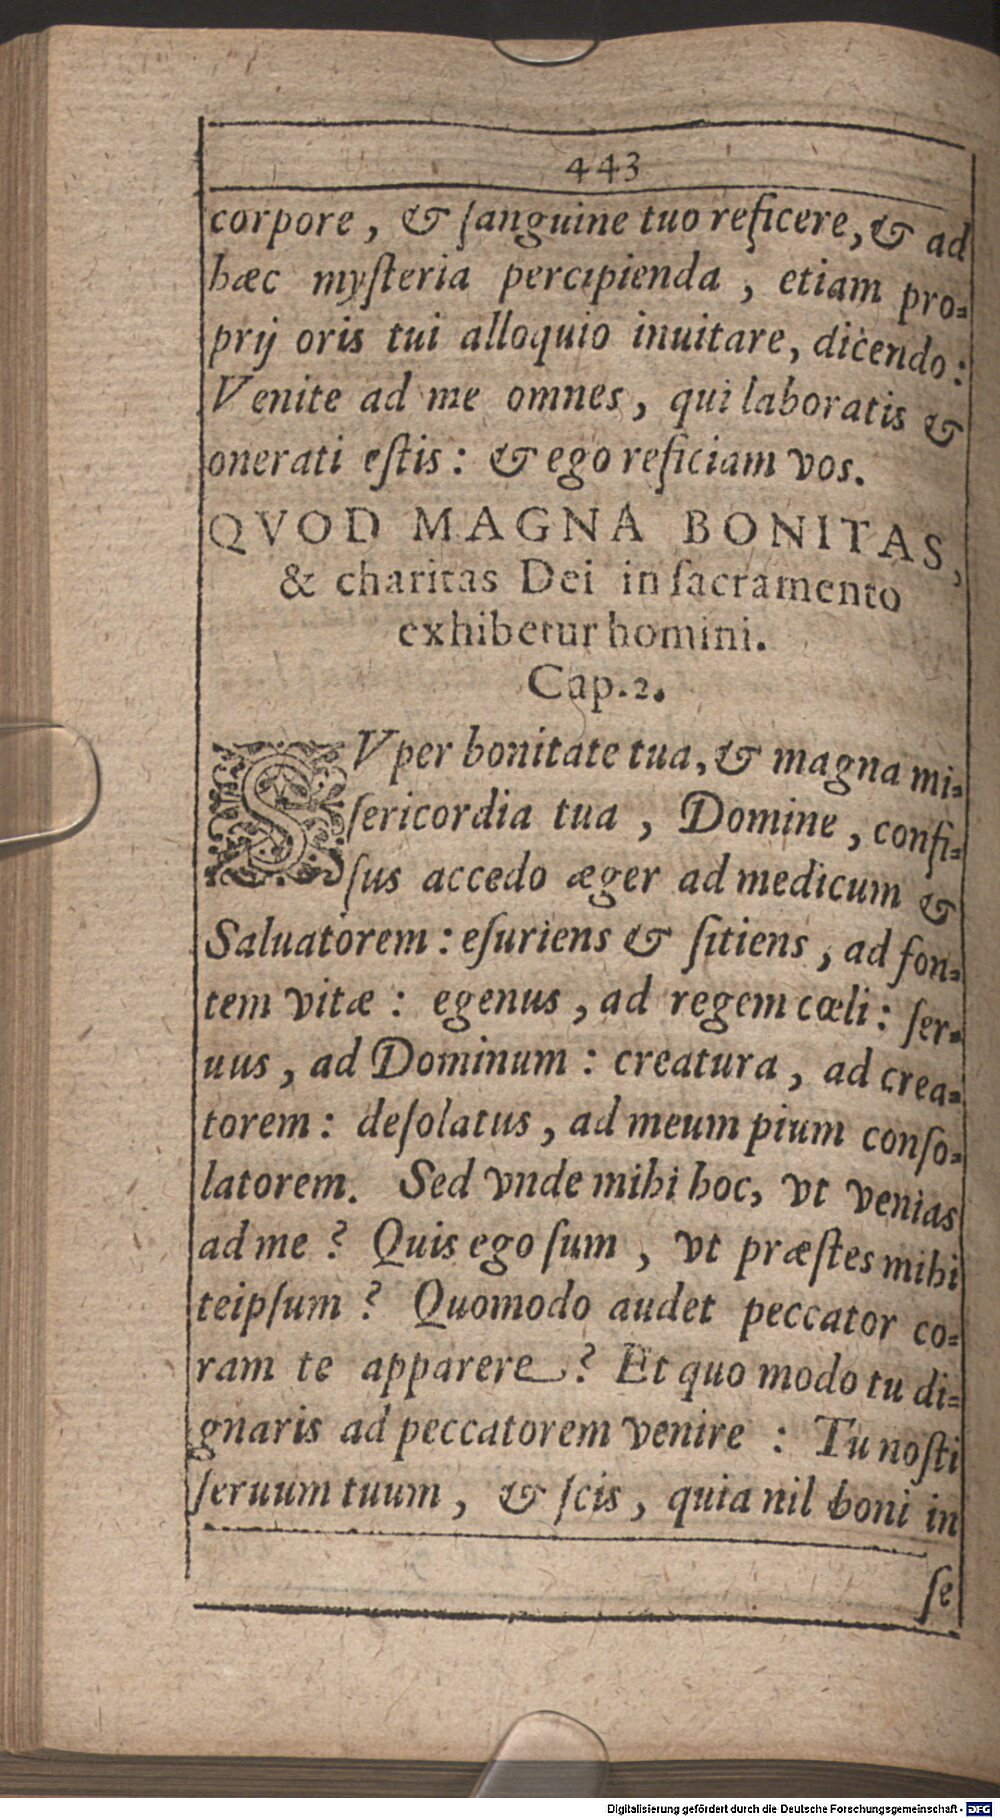 443
corpore, & ſanguine tuo reficere, & ad
hæc myſteria percipienda, etiam pro-
prij oris tui alloquio inuitare, dicendo:
Venite ad me omnes, qui laboratis &
onerati eſtis: & ego reficiam vos.
QVOD MAGNA BONITAS,
& charitas Dei in ſacramento
exhibetur homini.
Cap. 2.
SVper bonitate tua, & magna mi-
ſericordia tua, Domine, confi-
ſus accedo æger ad medicum &
Saluatorem: eſuriens & ſitiens, ad fon-
tem vitæ: egenus, ad regem cœli: ſer-
uus, ad Dominum: creatura, ad crea-
torem: deſolatus, ad meum pium conſo-
latorem. Sed vnde mihi hoc, vt venias
ad me? Quis ego ſum, vt præſtes mihi
teipſum? Quomodo audet peccator co-
ram te apparere? Et quo modo tu di-
gnaris ad peccatorem venire: Tu noſti
ſeruum tuum, & ſcis, quia nil boni in
ſe
Digitalisierung gefördert durch die Deutsche Forschungsgemeinschaft - DFG